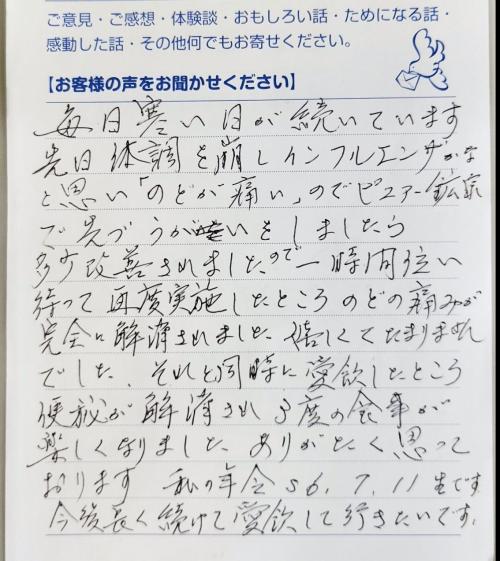 ご意見・ご感想・体験談・おもしろい話・ためになる話・
感動した話・その他何でもお寄せください。
【お客様の声をお聞かせください】
毎日寒い日が続いています
先日体調を崩しインフルエンザかな
と思い「のどが痛い」のでピュアー鉱泉
で先づうがいをしましたら
多少改善されましたので一時間位い
待って再度実施したところのどの痛みが
完全に解消されました。嬉しくてたまりません
でした。それと同時に愛飲したところ
便秘が解消され3度の食事が
楽しくなりました。ありがたく思って
おります 私の年令S6.7.11生です
今後長く続けて愛飲して行きたいです。